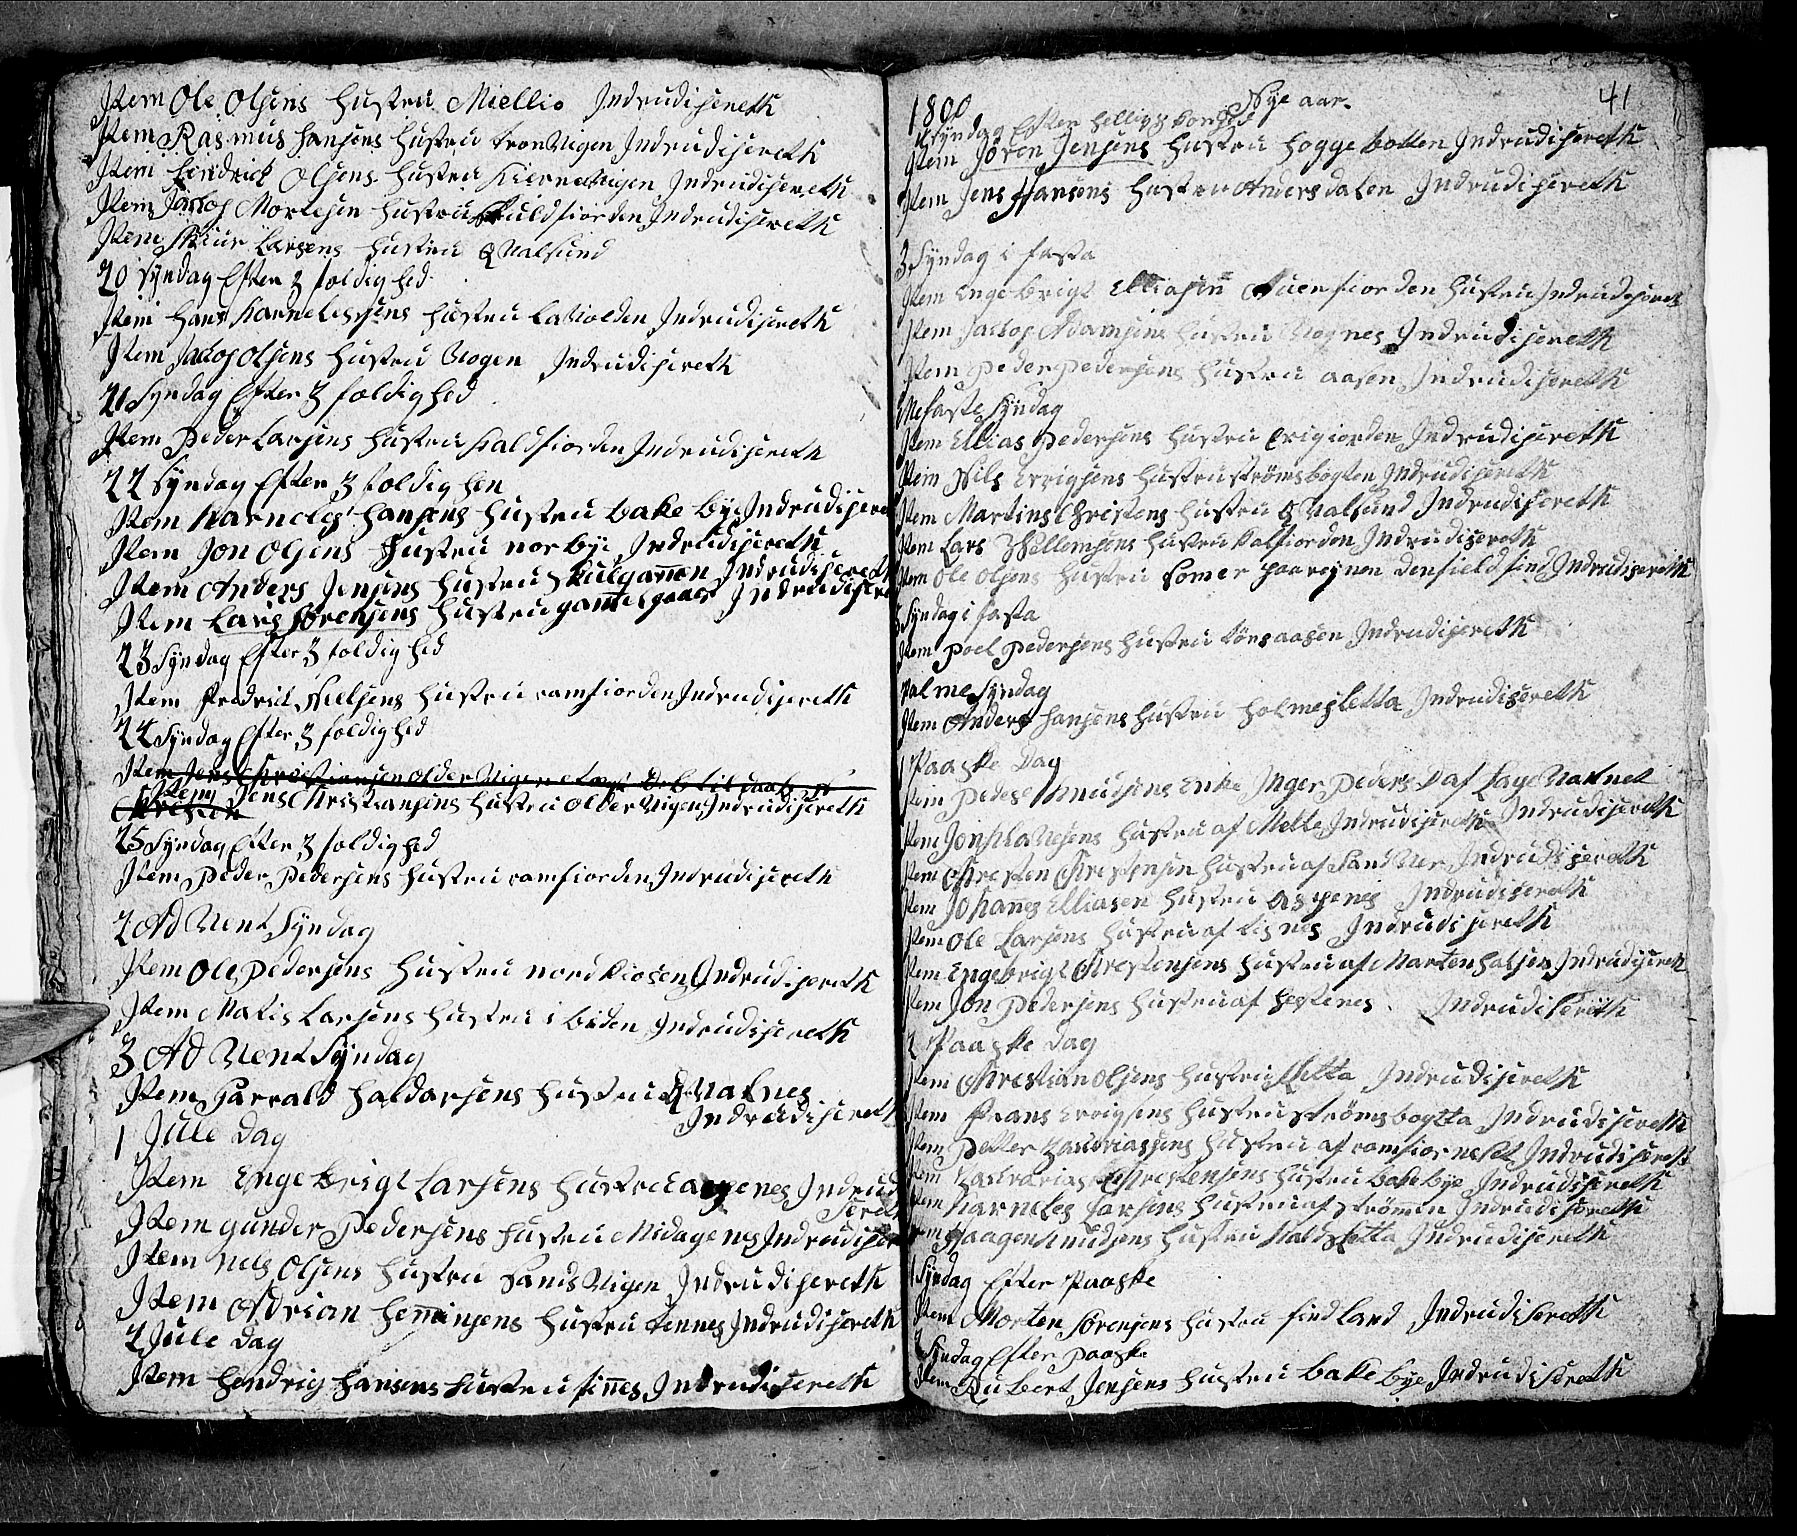 Item Ole Olsens Hustru Miellio Indrudisereth
Item Rasmus Hansens Hustru tronVigen Indrudisereth
Item Hendrick Olsens Hustru KierneVigen Indrudisereth
Item Jacob Mortesen Hustru fuldfiorden Indrudisereth
Item Larsens Hustru QValsund
20 Syndag Efter 3 foldighed
Item Hans Karnelessens Hustru laVolden Indrudisereth
Item Jacob Olsens Hustru Vogen Indrudisereth
21 Syndag Efter 3 foldighed
Item Peder Larsens Hustru Kaldfiorden Indrudisereth
22 Syndag Efter 3 foldighen
Item Karneles Hansens Hustru bake bye Indrudiser
Item Jon Olsens Hustru norbye Indrudisereth
Item Anders Jensens Hustru Skulgammen Indrudisereth
Item Lars Sørensens Hustru gammelgaar Indrudiser
23 Syndag Efter 3 foldighed
Item Fredrick Nielsens Hustru ramfiorden Indrudisereth
24 Syndag Efter 3 foldighed
Item Jens Christiansen olderVigen
Item Jens Christiansens Hustru olderVigen Indrudisereth
25 Syndag Efter 3 foldighed
Item Peder Pedersens Hustru ramfiorden Indrudisereth
2 AdVent Syndag
Item Ole Pedersens Hustru nordkiosen Indrudisereth
Item Matis Larsens Hustru i biden Indrudisereth
3 AdVent Syndag
Item Harrald Haldarsens Hustru QValnes
Indrudisereth
1 Jule Dag
Item Engebrigt Larsens Hustru aspenes Indrud
sereth
Item gunder Pedersens Hustru Midagenes Indrudiser
Item Nels Olsens Hustru SandsVigen Indrudisereth
Item Adrian Henninsens Hustru tennes Indrudisereth
2 Jule Dag
Item Hendrig Hansens Hustru finnes Indrudisereth
41
1800 Nye aar
Syndag Efter Hellig 3 kongers
Item Søren Jensens Hustru Hoggebotten Indrudisereth
Item Jens Hansens Hustru Andersdalen Indrudisereth
3 Syndag i fasta
Item Engebrigt Elliasen fiorden Hustru Indrudisereth
Item Jacob Adamsens Hustru Vognes Indrudisereth
Item Peder Pedersens Hustru aasen Indrudisereth
Mefaste Syndag
Item Ellias Pedersens Hustru Erigiorden Indrudisereth
Item Nils Errigsens Hustru Strømsbogten Indrudisereth
Item Martins Christens Hustru QValsund Indrudisereth
Item Lars Willemsens Hustru Kalfiorden Indrudisereth
Item Ole Olsens Hustru Indrudisereth
Syndag i fasta
Item Poel Pedersens Hustru tønsaasen Indrudisereth
Palme Syndag
Item Anders Hansens Hustru Holmesletta Indrudisereth
1 Paaske Dag
Item Peder Knudsens Enke Inger Peders D af
Item Jon Hustru af Melte Indrudisereth Indrudisereth
Item Christen Christensen Hustru af SandVer Indrudisereth
Item Johanes Elliasen Hustru aspenes Indrudisereth
Item Ole Larsens Hustru af tisnes Indrudisereth
Item Engebrigt Christensens Hustru af Martenhalsen Indrudisereth
Item Jon Pedersens Hustru af Hestenes Indrudisereth
2 Paaske Dag
Item Christian Olsens Hustru Sletta Indrudisereth
Item Frans Errigsens Hustru Strømsbogtta Indrudisereth
Item Petter Zacariassens Hustru af ramfiorneset Indrudisereth
Item Zacrarias Christensens Hustru bakebye Indrudisereth
Item Karneles Larsens Hustru af Strømen Indrudisereth
Item Haagen Knudsens Hustru Kaldsletta Indrudisereth
1 Syndag Efter Paaske
Item Morten Sørensens Hustru findland Indrudisereth
2 Syndag Efter Paaske
Item Rubert Jensens Hustru bake bye Indrudisereth